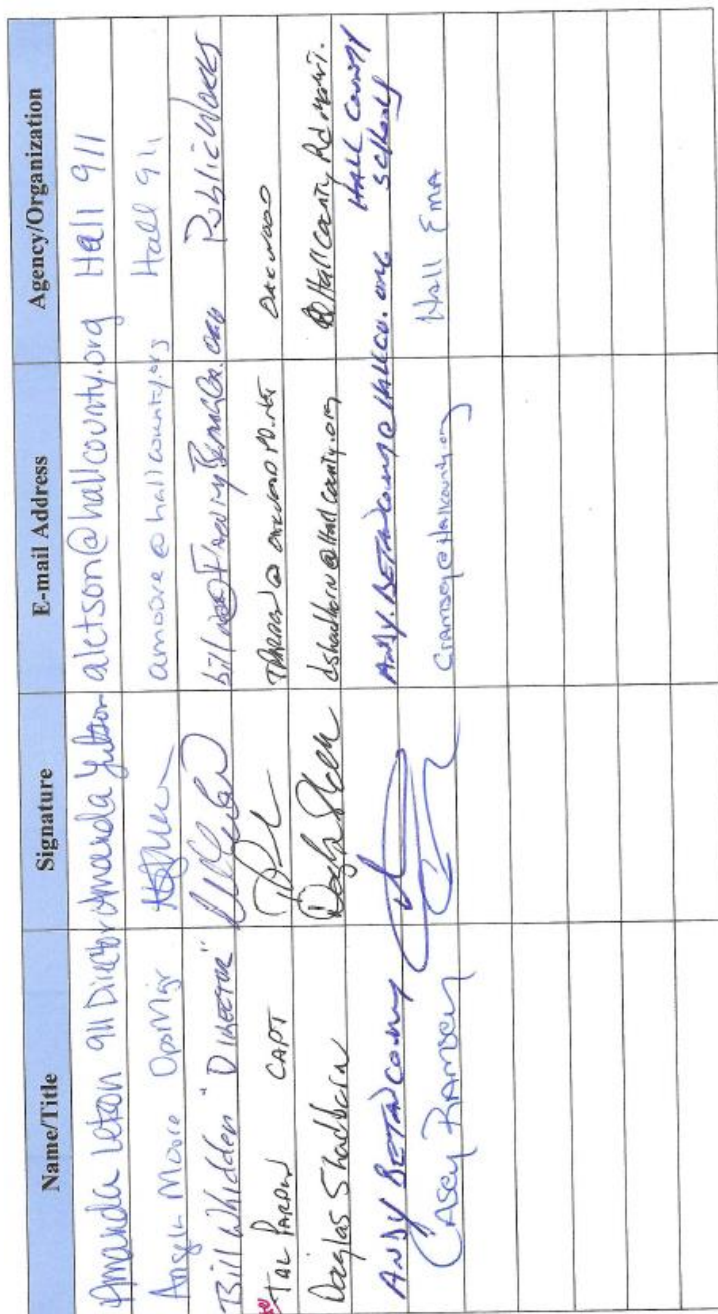 Name/Title Signature E-mail Address Agency/Organization
Amanda Letson 911 Director Amanda Letson aletson@hallcounty.org Hall 911
Angela Moore Ops Mgr amoore@hallcounty.org Hall 911
Bill Whidden "DIRECTOR" Public Works
Tal Parden CAPT OAKWOOD
Douglas Shadburn dshadburn@Hallcounty.org Hall County
ANDY BETANCOURT HALL COUNTY
SCHOOLS
CASEY RAMSEY cramsey@hallcounty.org Hall EMA